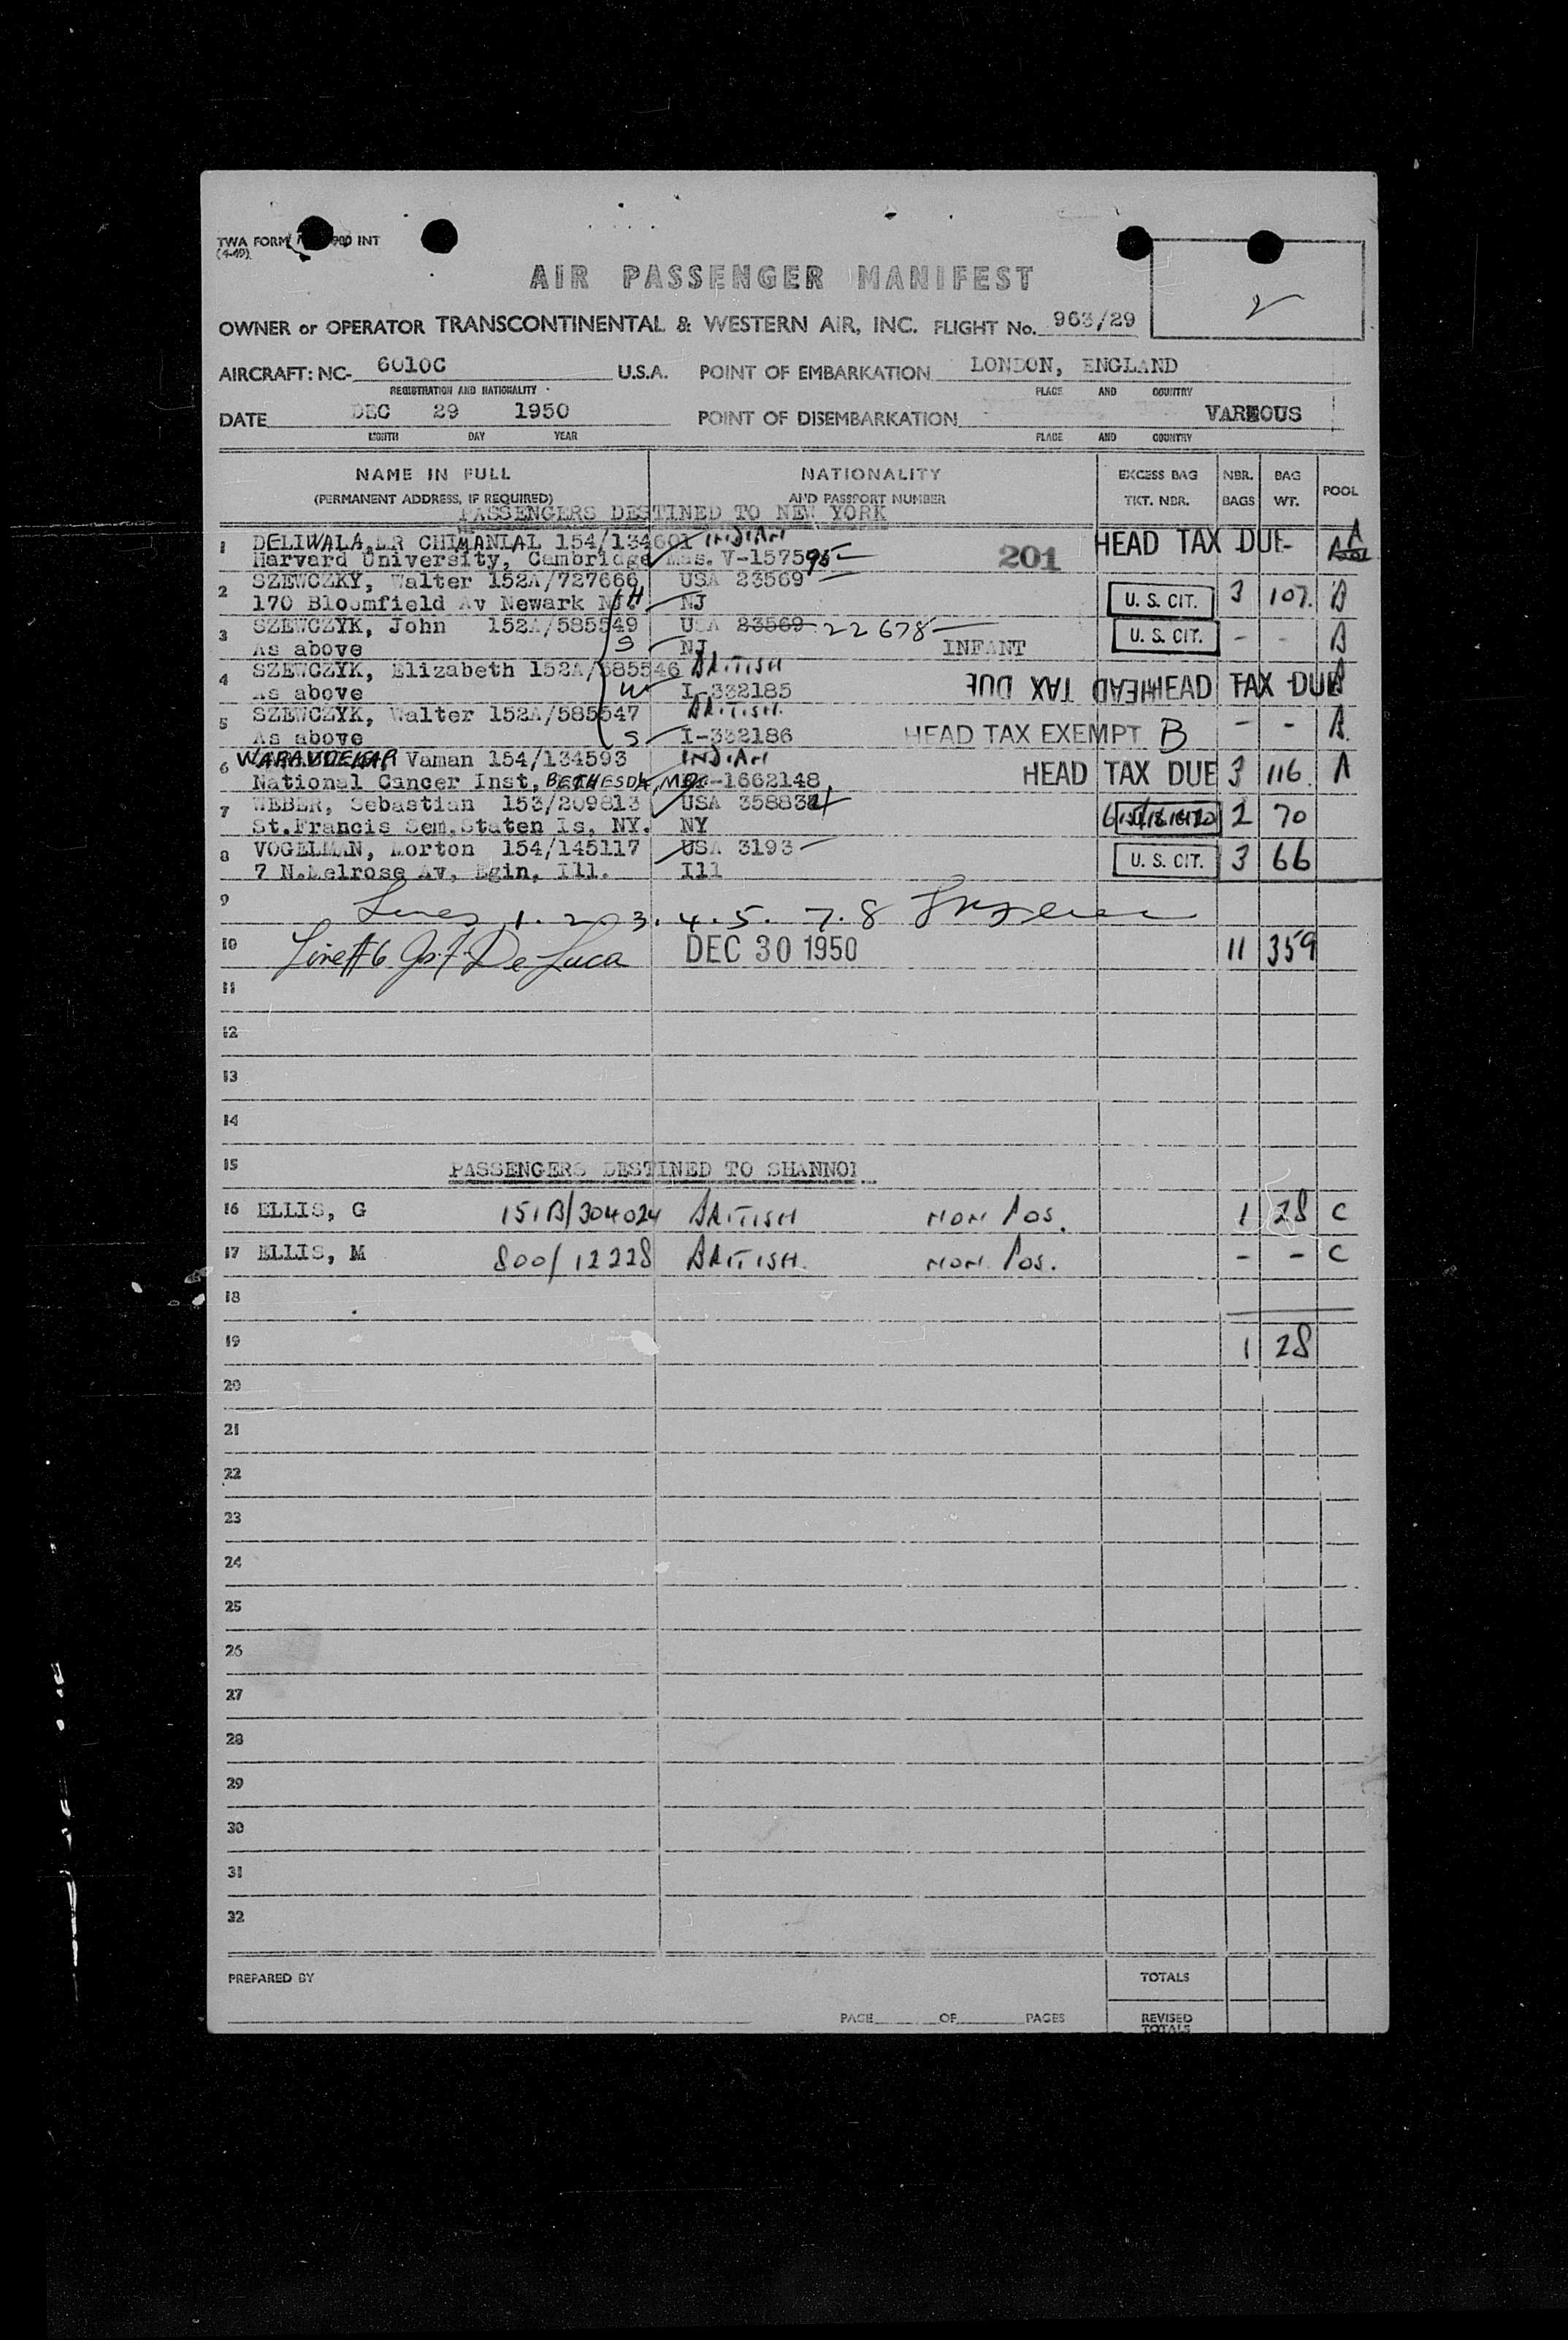 TWA FORM 900 INT
(4-49)
AIR PASSENGER MANIFEST
2
OWNER or OPERATOR TRANSCONTINENTAL & WESTERN AIR, INC. FLIGHT No. 963/29
AIRCRAFT: NC- 6010C U.S.A. POINT OF EMBARKATION LONDON, ENGLAND
REGISTRATION AND NATIONALITY PLACE AND COUNTRY
DATE DEC 29 1950 POINT OF DISEMBARKATION VARIOUS
MONTH DAY YEAR PLACE AND COUNTRY
NAME IN FULL NATIONALITY EXCESS BAG NBR. BAG POOL
(PERMANENT ADDRESS, IF REQUIRED) AND PASSPORT NUMBER TKT. NBR. BAGS WT.
PASSENGERS DESTINED TO NEW YORK
1 DELIWALA, DR CHIMANLAL 154/134601 INDIAN HEAD TAX DUE A
Harvard University, Cambridge Mas. V-157595 201
2 SZEWCZKY, Walter 152A/727666 USA 23569
170 Bloomfield Av Newark NJ H NJ U. S. CIT. 3 107. A
3 SZEWCZYK, John 152A/585549 USA 23569 22678
As above S NJ INFANT U. S. CIT. - - A
4 SZEWCZYK, Elizabeth 152A/585546 BRITISH
As above W I-332185 HEAD TAX DUE HEAD TAX DUE A
5 SZEWCZYK, Walter 152A/585547 BRITISH.
As above S I-332186 HEAD TAX EXEMPT B - - A.
6 WARAVDEKAR Vaman 154/134593 INDIAN
National Cancer Inst, BETHESDA, MD -1662148 HEAD TAX DUE 3 116. A
7 WEBER, Sebastian 153/209813 USA 358834
St.Francis Sem.Staten Is, NY. NY 2 70
8 VOGELMAN, Morton 154/145117 USA 3193
7 N.Melrose Av, Egin, Ill. Ill U. S. CIT. 3 66
9 Lines 1. 2. 3. 4. 5. 7. 8
10 Line #6 Jos. F. De Luca DEC 30 1950 11 359
11
12
13
14
15 PASSENGERS DESTINED TO SHANNON
16 ELLIS, G 151B/304024 BRITISH NON POS. 1 28 C
17 ELLIS, M 800/12228 BRITISH. NON POS. - - C
18
19 1 28
20
21
22
23
24
25
26
27
28
29
30
31
32
PREPARED BY TOTALS
PAGE OF PAGES REVISED
TOTALS